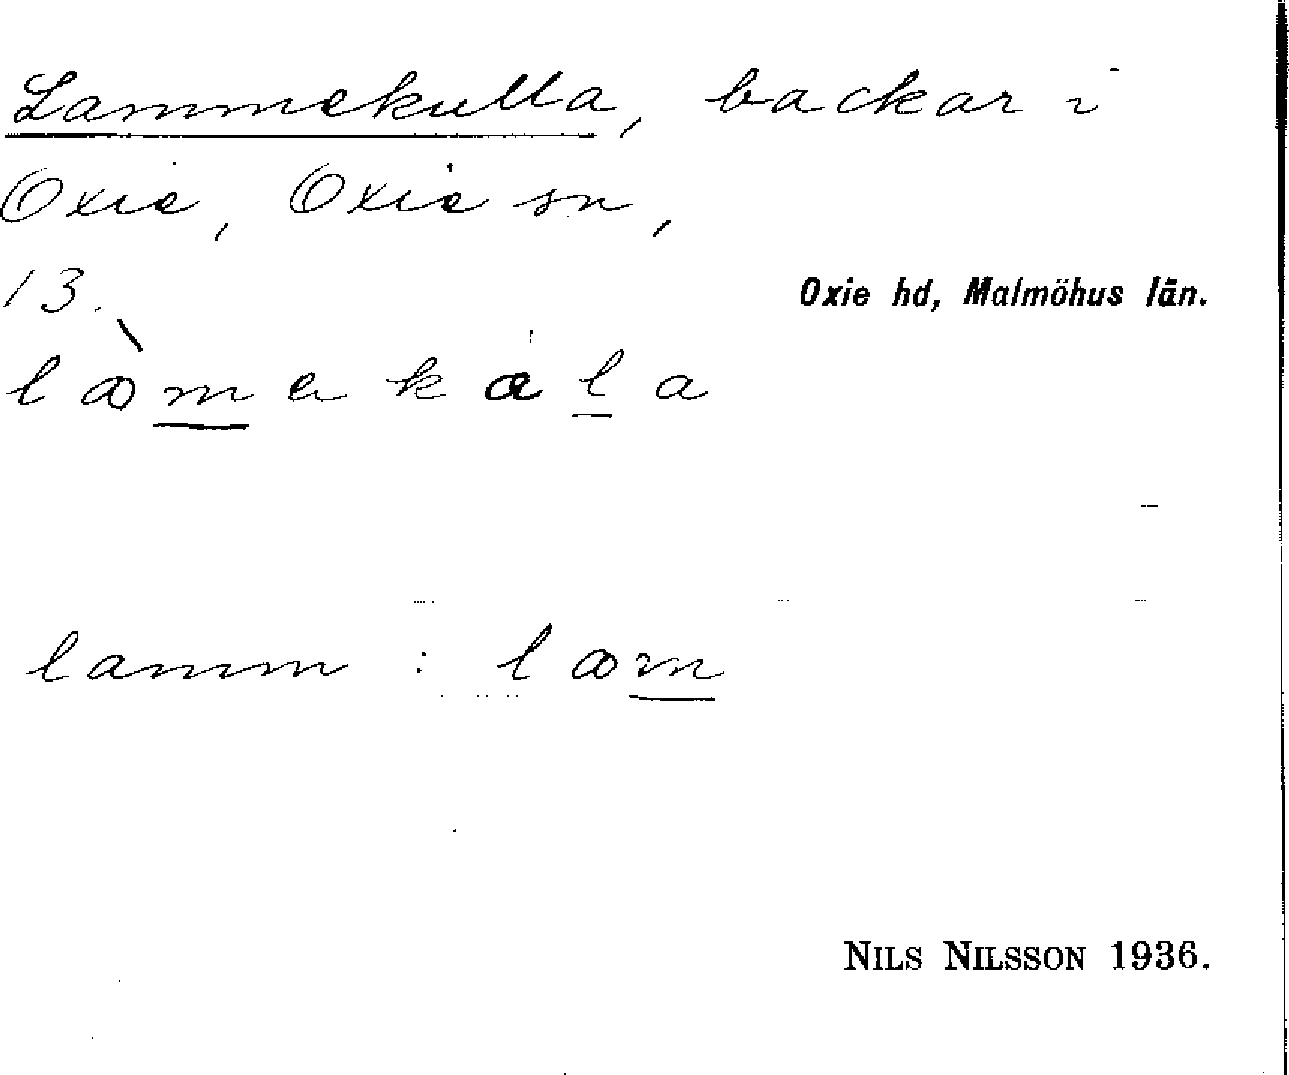 Lammekulla, backar i
Oxie, Oxie sn,
13. Oxie hd, Malmöhus län.
læ̀mekala
lamm : læm
NILS NILSSON 1936.